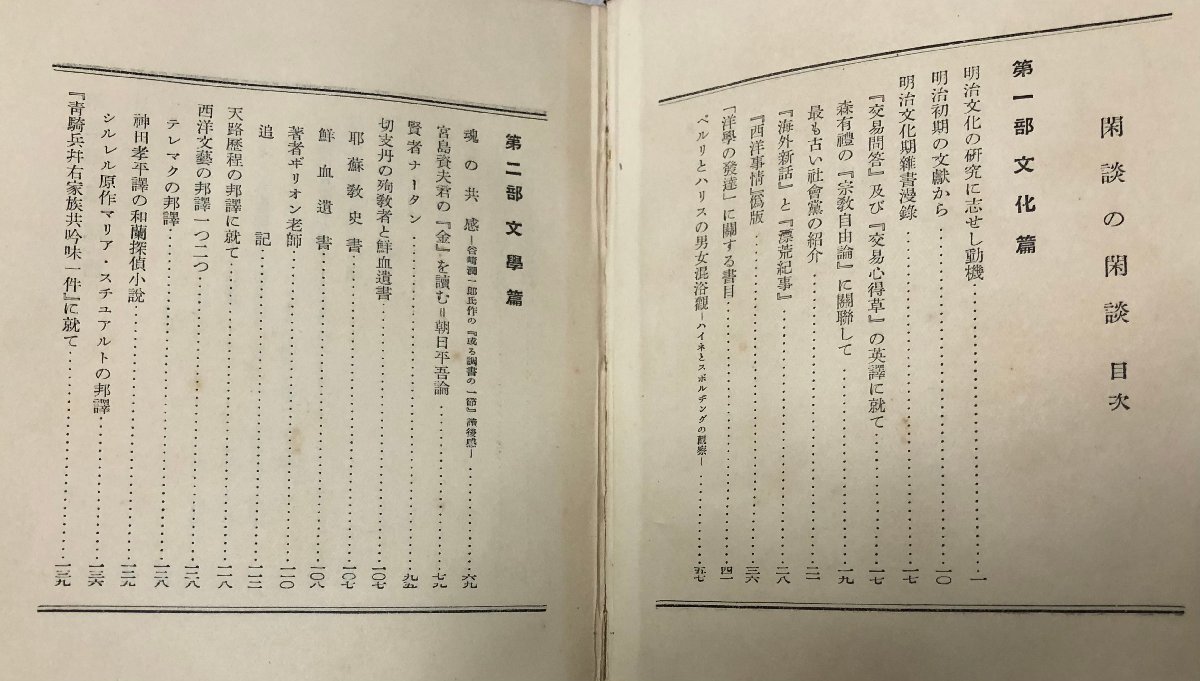 閑談の閑談 目次
第一部文化篇
明治文化の研究に志せし動機…一
明治初期の文獻から…一〇
明治文化期雜書漫錄…一七
『交易問答』及び『交易心得草』の英譯に就て…一七
森有禮の『宗教自由論』に關聯して…一九
最も古い社會黨の紹介…二一
『海外新話』と『漂荒紀事』…二八
『西洋事情』僞版…三六
「洋學の發達」に關する書目…四一
ペルリとハリスの男女混浴觀―ハイネとスポルチングの觀察―…五七
第二部文學篇
魂の共感―谷崎潤一郎氏作の『或る調書の一節』讀後感―…六九
宮島資夫君の『金』を讀む＝朝日平吾論…七九
賢者ナータン…九五
切支丹の殉敎者と鮮血遺書…一〇七
耶蘇敎史書…一〇七
鮮血遺書…一〇八
著者ヸリオン老師…一一〇
追記…一一二
天路歷程の邦譯に就て…一一八
西洋文藝の邦譯一つ二つ…一二八
テレマクの邦譯…一二八
神田孝平譯の和蘭探偵小說…一二九
シルレル原作マリア・スチュアルトの邦譯…一三六
『青騎兵幷右家族共吟味一件』に就て…一三九